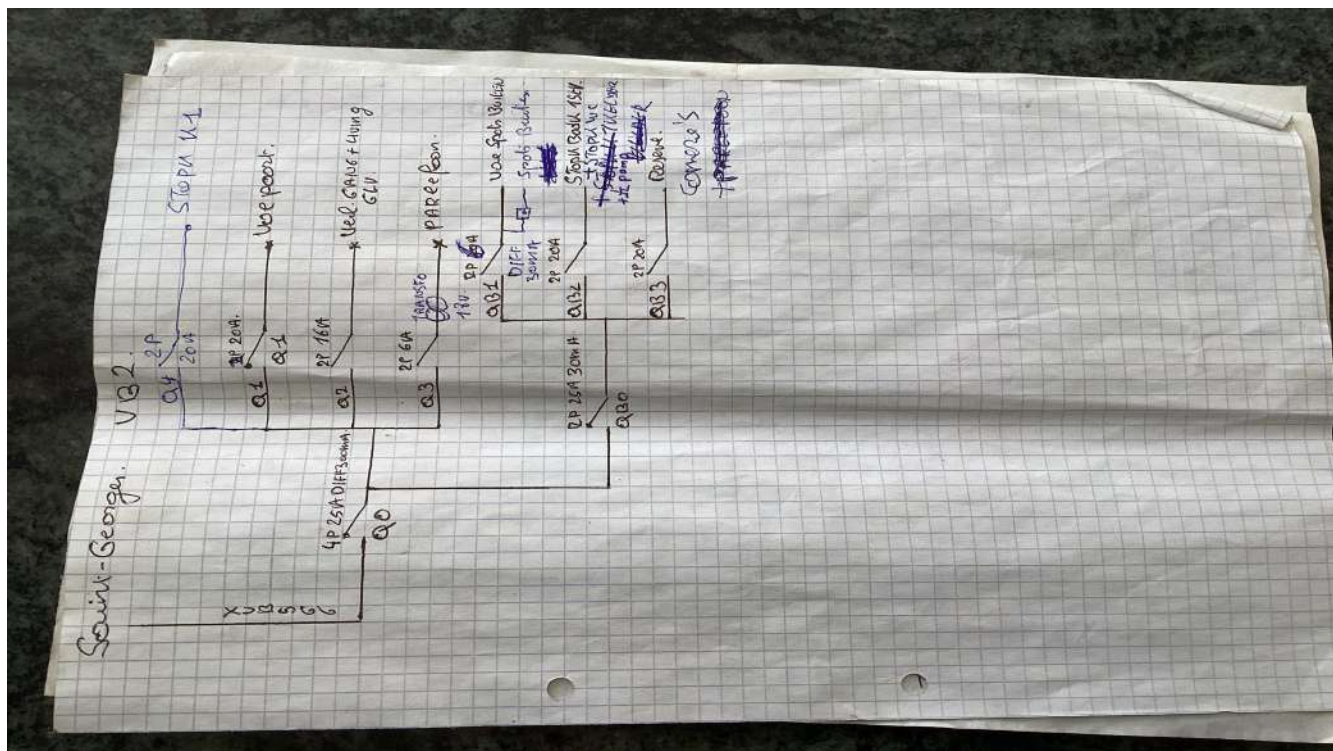 Saint-Georges. VB2.
XVB 5G6
4P 25A DIFF 300mA
Q0
Q4
2P
20A
STOPK K1
Q1
2P 20A.
Q1
Voe poort.
Q2
2P 16A
Verl. GANG + Living
GLV
Q3
2P 6A
TRANSFO
18V.
PARLEfoon.
2P 25A 30mA
QB0
QB1
2P
Voe Spots Buiten
DIFF
30mA
Spots Buiten
QB2
2P 20A
STOPK
+ STOPK WC
QB3
2P 20A
Reserve.
Camera's